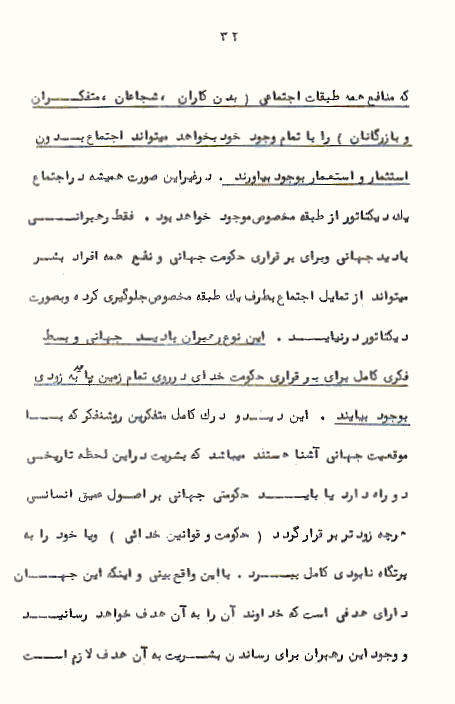 ۳۲
که منافع همه طبقات اجتماعی ( بدن کاران ، شجاعان ، متفکران
و بازرگانان ) را با تمام وجود خود بخواهد میتواند اجتماع بدون
استثمار و استعمار بوجود بیاورند . درغیراین صورت همیشه دراجتماع
یك دیکتاتور از طبقه مخصوص موجود خواهد بود . فقط رهبرانی
بادید جهانی وبرای برقراری حکومت جهانی و نفع همه افراد بشر
میتواند از تمایل اجتماع بطرف یك طبقه مخصوص جلوگیری کرده وبصورت
دیکتاتور درنیاید . این نوع رهبران بادید جهانی و بسط
فکری کامل برای برقراری حکومت خدای درروی تمام زمین به زودی
بوجود بیایند . این دید و درك کامل متفکرین روشنفکر که با
موقعیت جهانی آشنا هستند میباشد که بشریت دراین لحظه تاریخی
دو راه دارد یا باید حکومتی جهانی بر اصول عمیق انسانی
هرچه زودتر برقرار گردد ( حکومت و قوانین خدائی ) ویا خود را به
پرتگاه نابودی کامل ببرد . بااین واقع بینی و اینکه این جهان
دارای هدفی است که خداوند آن را به آن هدف خواهد رسانید
و وجود این رهبران برای رساندن بشریت به آن هدف لازم است